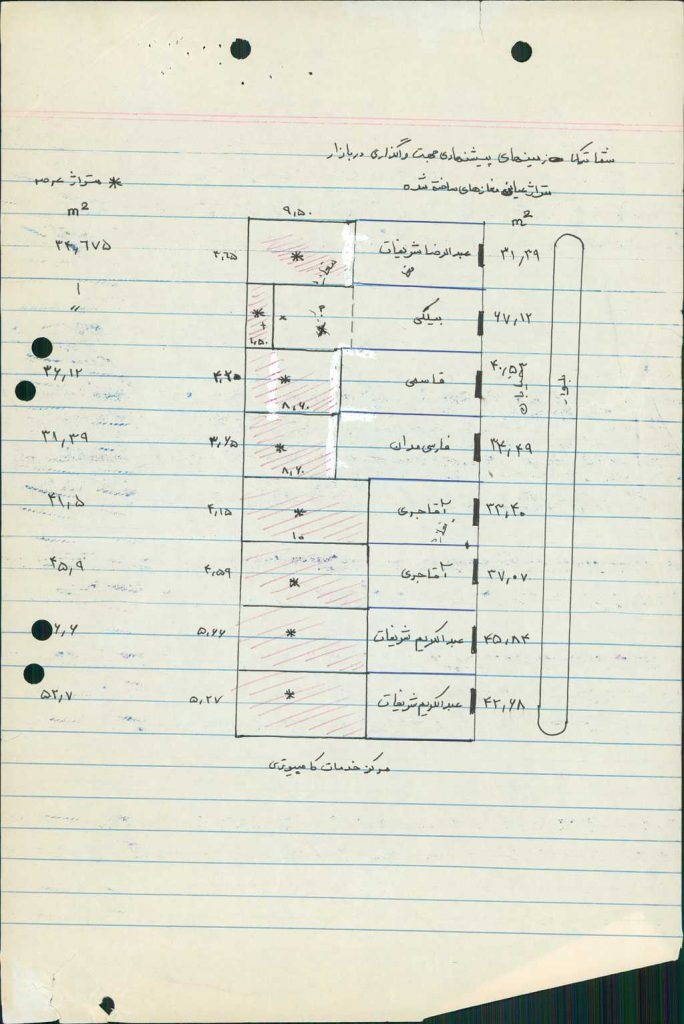 شماتیک زمینهای پیشنهادی جهت واگذاری در بازار
متراژ عرصه *
متراژ مغازهای ساخته شده
m²
۹,۵۰
m²
۳۴,۶۷۵
۳,۶۵
*
عبدالرضا شریفات
۳۱,۳۹
"
*
۱,۵۰
×
*
بیگی
۶۷,۱۲
۳۶,۱۲
۴,۲۰
*
۸,۶۰
قاسمی
۴۰,۵۳
خیابان
بلوار
۳۱,۳۹
۳,۶۵
*
۸,۶۰
فارسی مدان
۳۴,۴۹
۴۱,۵
۴,۱۵
*
۱۰
آقاجری
۳۳,۴۰
۴۵,۹
۴,۵۹
*
آقاجری
۳۷,۰۷
۶,۶
۵,۶۶
*
عبدالکریم شریفات
۴۵,۸۴
۵۲,۷
۵,۲۷
*
عبدالکریم شریفات
۴۲,۶۸
مرکز خدمات کامپیوتری